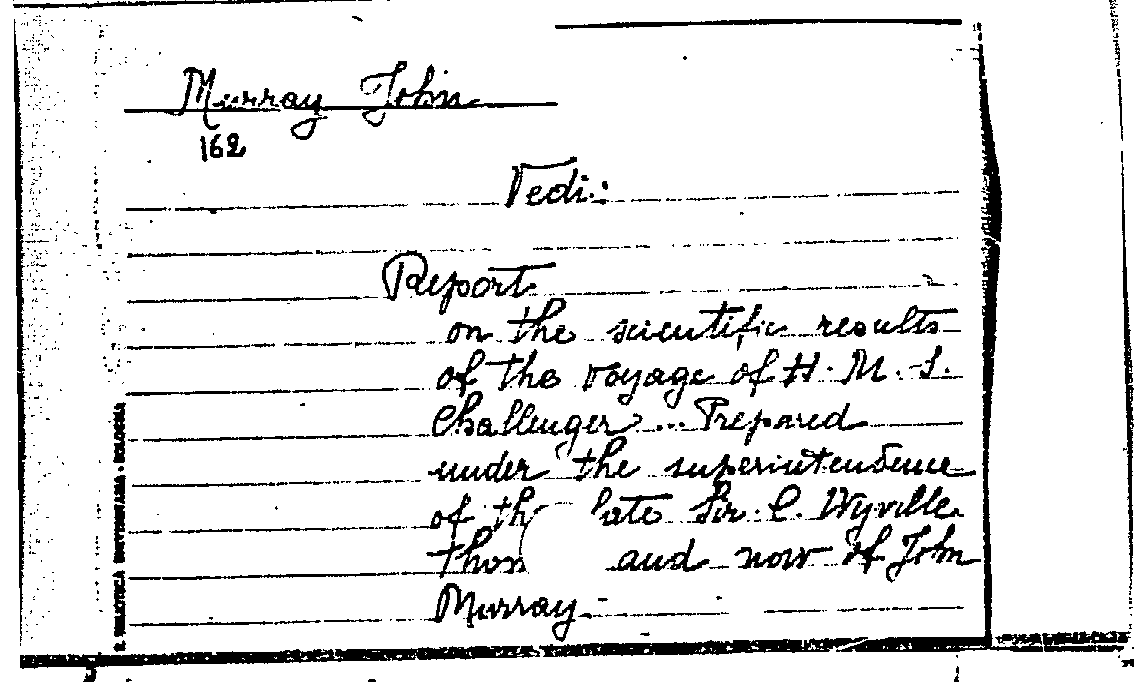 Murray John
162
Vedi:
Report
on the scientific results
of the voyage of H. M. S.
Challenger ... Prepared
under the superintendence
of the late Sir. C. Wyville
Thom and now of John
Murray -
R. BIBLIOTECA UNIVERSITARIA - BOLOGNA